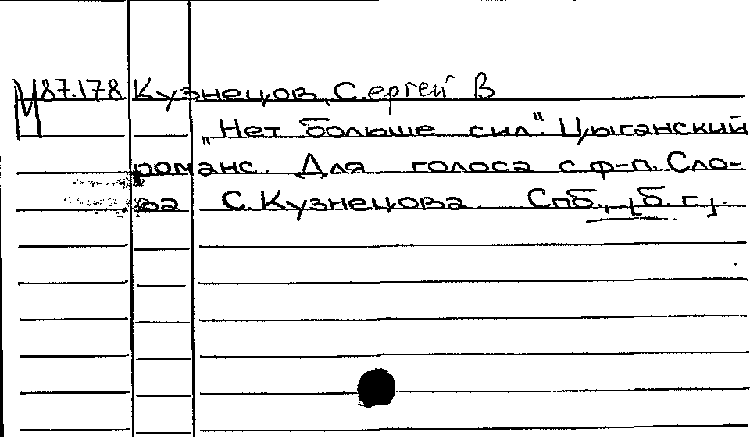 М87.178 Кузнецов, Сергей В
„Нет больше сил". Цыганский
романс. Для голоса с ф-п. Сло-
ва С. Кузнецова. Спб., [б.г.].